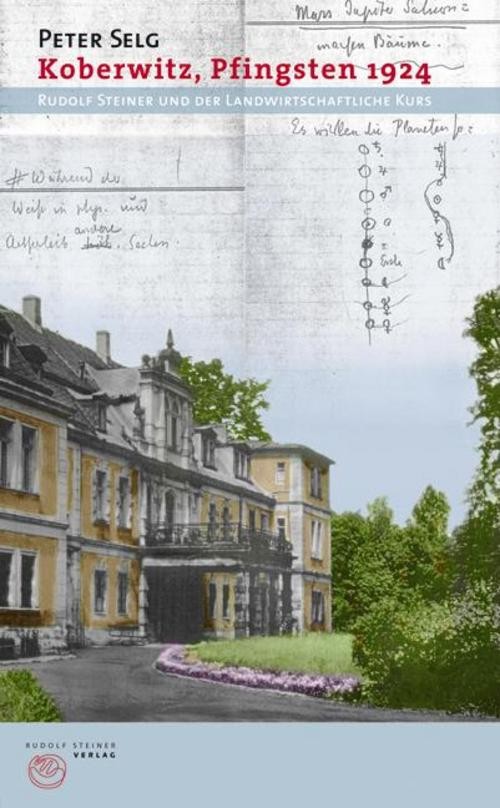 Mars Jupiter Saturn =
machen Bäume.
PETER SELG
Koberwitz, Pfingsten 1924
RUDOLF STEINER UND DER LANDWIRTSCHAFTLICHE KURS
Es wirken die Planeten so:
# Während das
Weiß in phys. und
andere
Aetherleib Sachen.
Erde
RUDOLF STEINER
VERLAG